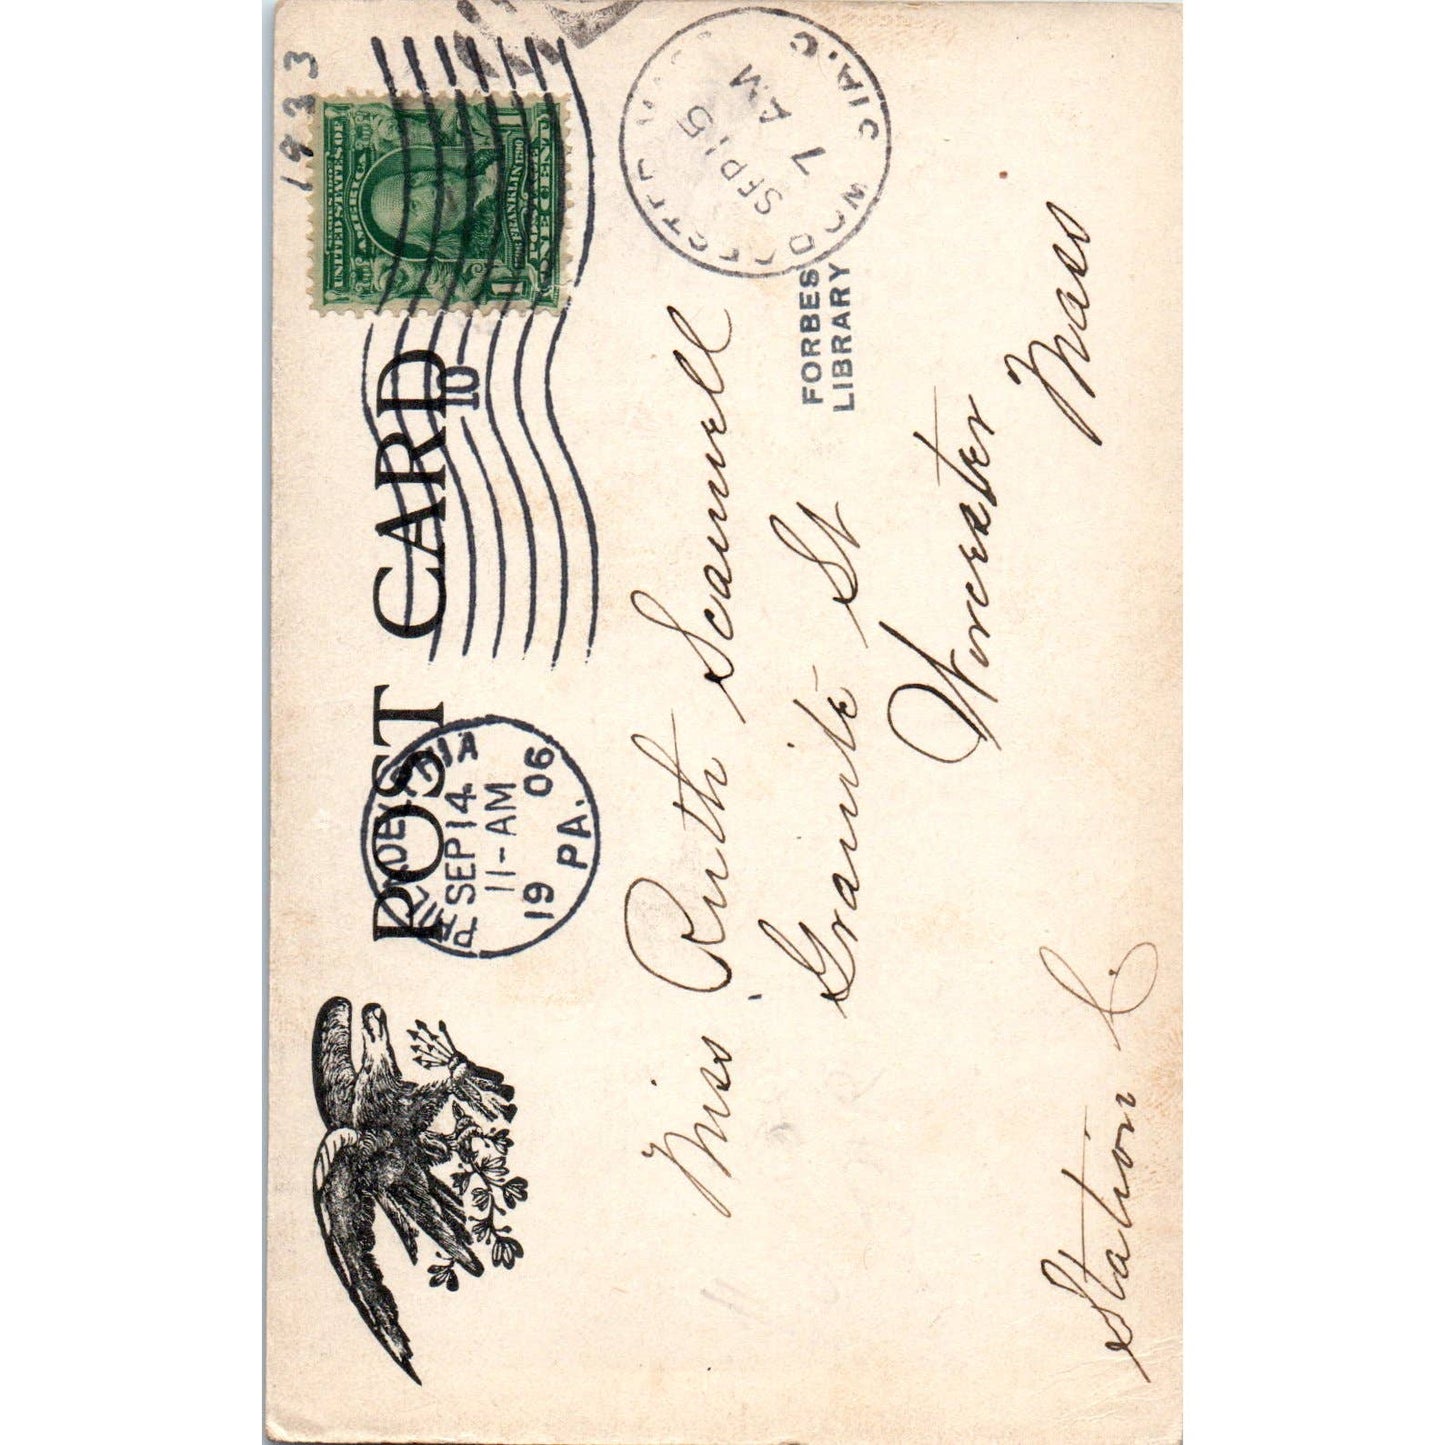 1933
POST CARD
PHILADELPHIA
SEP 14
11-AM
1906
PA.
10
SERIES 1902
UNITED STATES OF
AMERICA
FRANKLIN
POSTAGE
ONE CENT
1 1
WORCESTER MASS
SEP 15
7 AM
FORBES
LIBRARY
Miss Ruth Scannell
Granite St
Worcester
Mass
Station C.